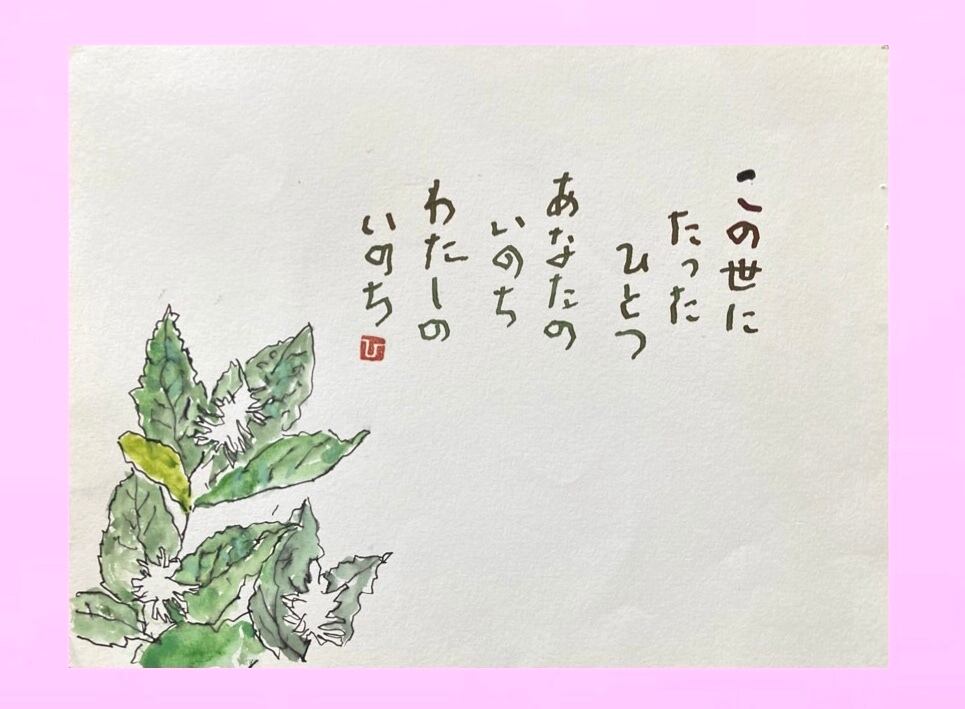 この世に
たった
ひとつ
あなたの
いのち
わたしの
いのち
ひ